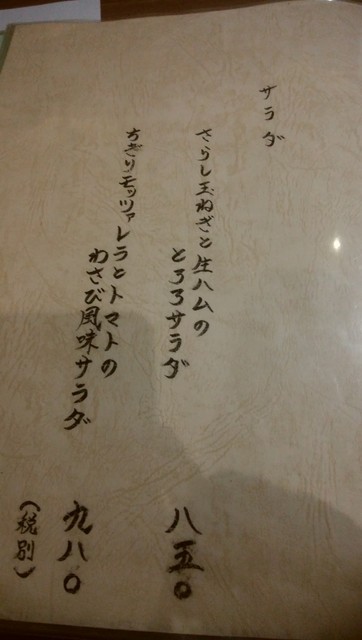 サラダ
さらし玉ねぎと生ハムの
とろろサラダ
八五〇
ちぎりモッツァレラとトマトの
わさび風味サラダ
九八〇
(税別)